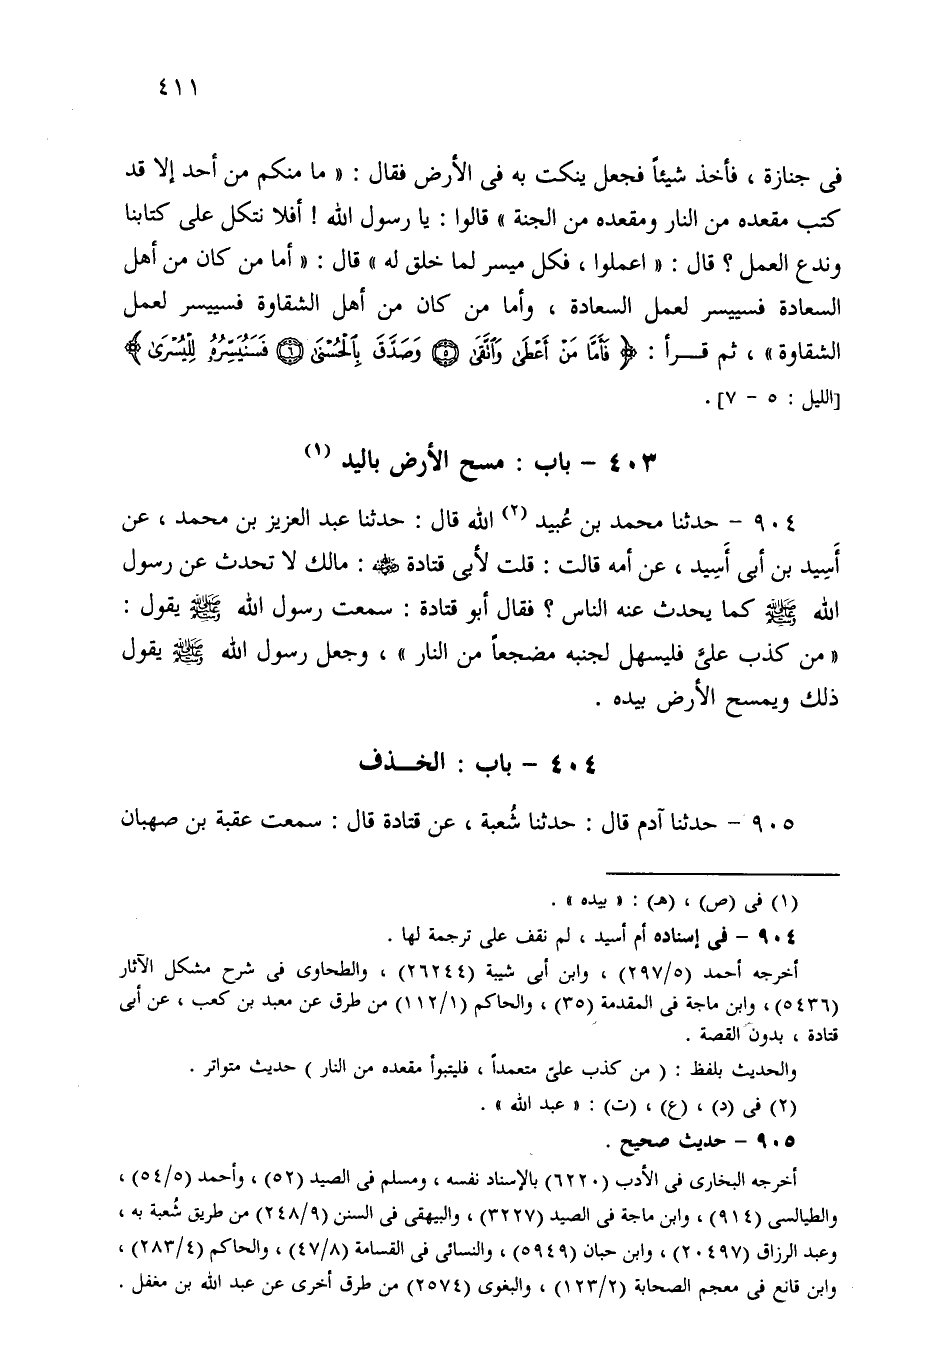 ٤١١
فى جنازة ، فأخذ شيئاً فجعل ينكت به فى الأرض فقال : « ما منكم من أحد إلا قد
كتب مقعده من النار ومقعده من الجنة » قالوا : يا رسول الله ! أفلا نتكل على كتابنا
وندع العمل ؟ قال : « اعملوا ، فكل ميسر لما خلق له » قال : « أما من كان من أهل
السعادة فسييسر لعمل السعادة ، وأما من كان من أهل الشقاوة فسييسر لعمل
الشقاوة » ، ثم قــرأ : ﴿ فَأَمَّا مَنْ أَعْطَىٰ وَٱتَّقَىٰ ٥ وَصَدَّقَ بِٱلْحُسْنَىٰ ٦ فَسَنُيَسِّرُهُۥ لِلْيُسْرَىٰ ﴾
[الليل : ٥ – ٧] .
٤٠٣ – باب : مسح الأرض باليد (١)
٩٠٤ – حدثنا محمد بن عُبيد (٢) الله قال : حدثنا عبد العزيز بن محمد ، عن
أَسِيد بن أبى أَسِيد ، عن أمه قالت : قلت لأبى قتادة رضي الله عنه : مالك لا تحدث عن رسول
الله ﷺ كما يحدث عنه الناس ؟ فقال أبو قتادة : سمعت رسول الله ﷺ يقول :
« من كذب علىَّ فليسهل لجنبه مضجعاً من النار » ، وجعل رسول الله ﷺ يقول
ذلك ويمسح الأرض بيده .
٤٠٤ – باب : الخــذف
٩٠٥ – حدثنا آدم قال : حدثنا شُعبة ، عن قتادة قال : سمعت عقبة بن صهبان
(١) فى (ص) ، (هـ) : « بيده » .
٩٠٤ – فى إسناده أم أسيد ، لم نقف على ترجمة لها .
أخرجه أحمد (٢٩٧/٥) ، وابن أبى شيبة (٢٦٢٤٤) ، والطحاوى فى شرح مشكل الآثار
(٥٤٣٦) ، وابن ماجة فى المقدمة (٣٥) ، والحاكم (١١٢/١) من طرق عن معبد بن كعب ، عن أبى
قتادة ، بدون القصة .
والحديث بلفظ : ( من كذب علىّ متعمداً ، فليتبوأ مقعده من النار ) حديث متواتر .
(٢) فى (د) ، (ع) ، (ت) : « عبد الله » .
٩٠٥ – حديث صحيح .
أخرجه البخارى فى الأدب (٦٢٢٠) بالإسناد نفسه ، ومسلم فى الصيد (٥٢) ، وأحمد (٥٤/٥) ،
والطيالسى (٩١٤) ، وابن ماجة فى الصيد (٣٢٢٧) ، والبيهقى فى السنن (٢٤٨/٩) من طريق شُعبة به ،
وعبد الرزاق (٢٠٤٩٧) ، وابن حبان (٥٩٤٩) ، والنسائى فى القسامة (٤٧/٨) ، والحاكم (٢٨٣/٤) ،
وابن قانع فى معجم الصحابة (١٢٣/٢) ، والبغوى (٢٥٧٤) من طرق أخرى عن عبد الله بن مغفل .